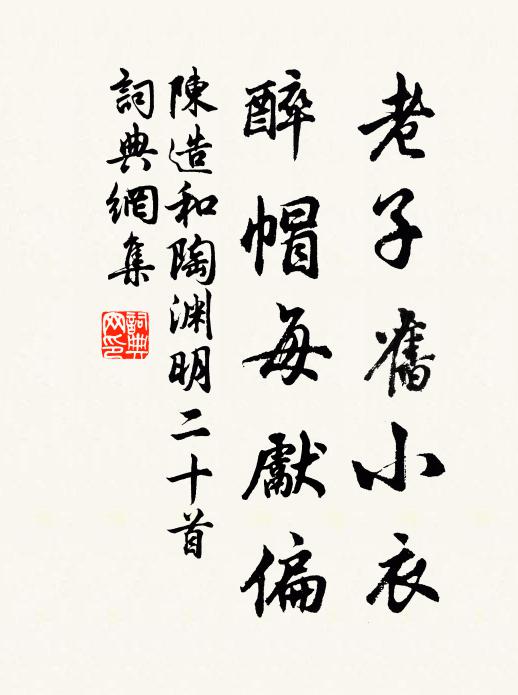 老子舊小衣
醉帽每獻偏
陳造和陶淵明二十首
詞典網集
詞典網印